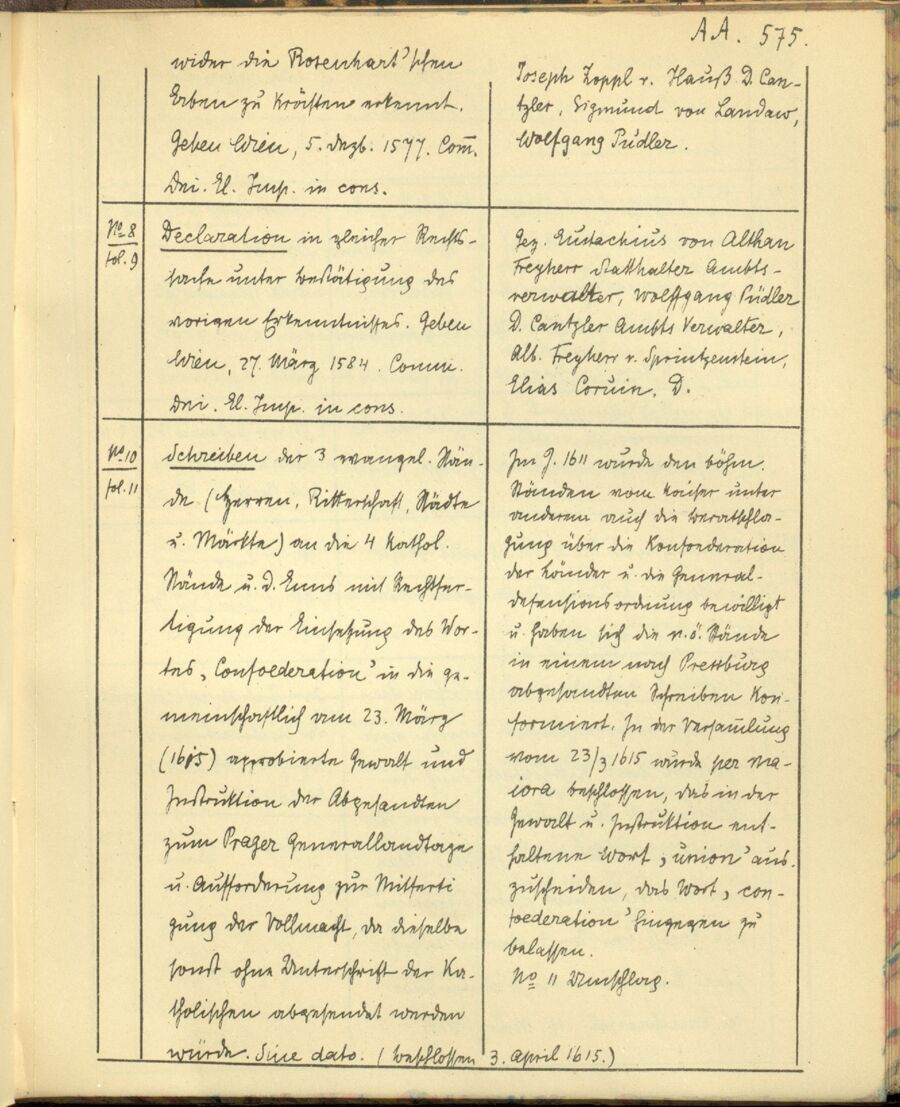 AA. 575.
wider die Rosenhart'schen
Erben zu Kräften erkennt.
Geben Wien, 5. Dezb. 1577. Com̅.
Dni. El. Imp. in cons.
Joseph Zoppl v. Hauß D. Can-
tzler, Sigmund von Landaw,
Wolfgang Püdler.
No 8
fol. 9
Declaration in gleicher Rechts-
sache unter Bestätigung des
vorigen Erkenntnisses. Geben
Wien, 27. März 1584. Comm.
Dni. El. Imp. in cons.
Gez. Eustachius von Althan
Freyherr Statthalter Ambts-
verwalter, Wolffgang Püdler
D. Cantzler Ambts Verwalter,
Alb. Freyherr v. Sprintzenstein,
Elias Coruin. D.
No 10
fol. 11
Schreiben der 3 evangel. Stän-
de (Herren, Ritterschaft, Städte
u. Märkte) an die 4 kathol.
Stände u. d. Enns mit Rechtfer-
tigung der Einsetzung des Wor-
tes „Confoederation" in die ge-
meinschaftlich am 23. März
(1615) approbierte Gewalt und
Instruktion der Abgesandten
zum Prager Generallandtage
u. Aufforderung zur Mitferti
gung der Vollmacht, da dieselbe
sonst ohne Unterschrift der Ka-
tholischen abgesendet werden
würde. Sine dato. (beschlossen 3. April 1615.)
Im J. 1611 wurde den böhm.
Ständen vom Kaiser unter
anderem auch die Beratschla-
gung über die Konfoederation
der Länder u. die General-
defensionsordnung bewilligt
u. haben sich die n.ö. Stände
in einem nach Pressburg
abgesandten Schreiben kon-
formiert. In der Versam̅lung
vom 23/3 1615 wurde per ma-
iora beschlossen, das in der
Gewalt u. Instruktion ent-
haltene Wort „union" aus-
zuscheiden, das Wort „con-
foederation" hingegen zu
belassen.
No 11 Umschlag.